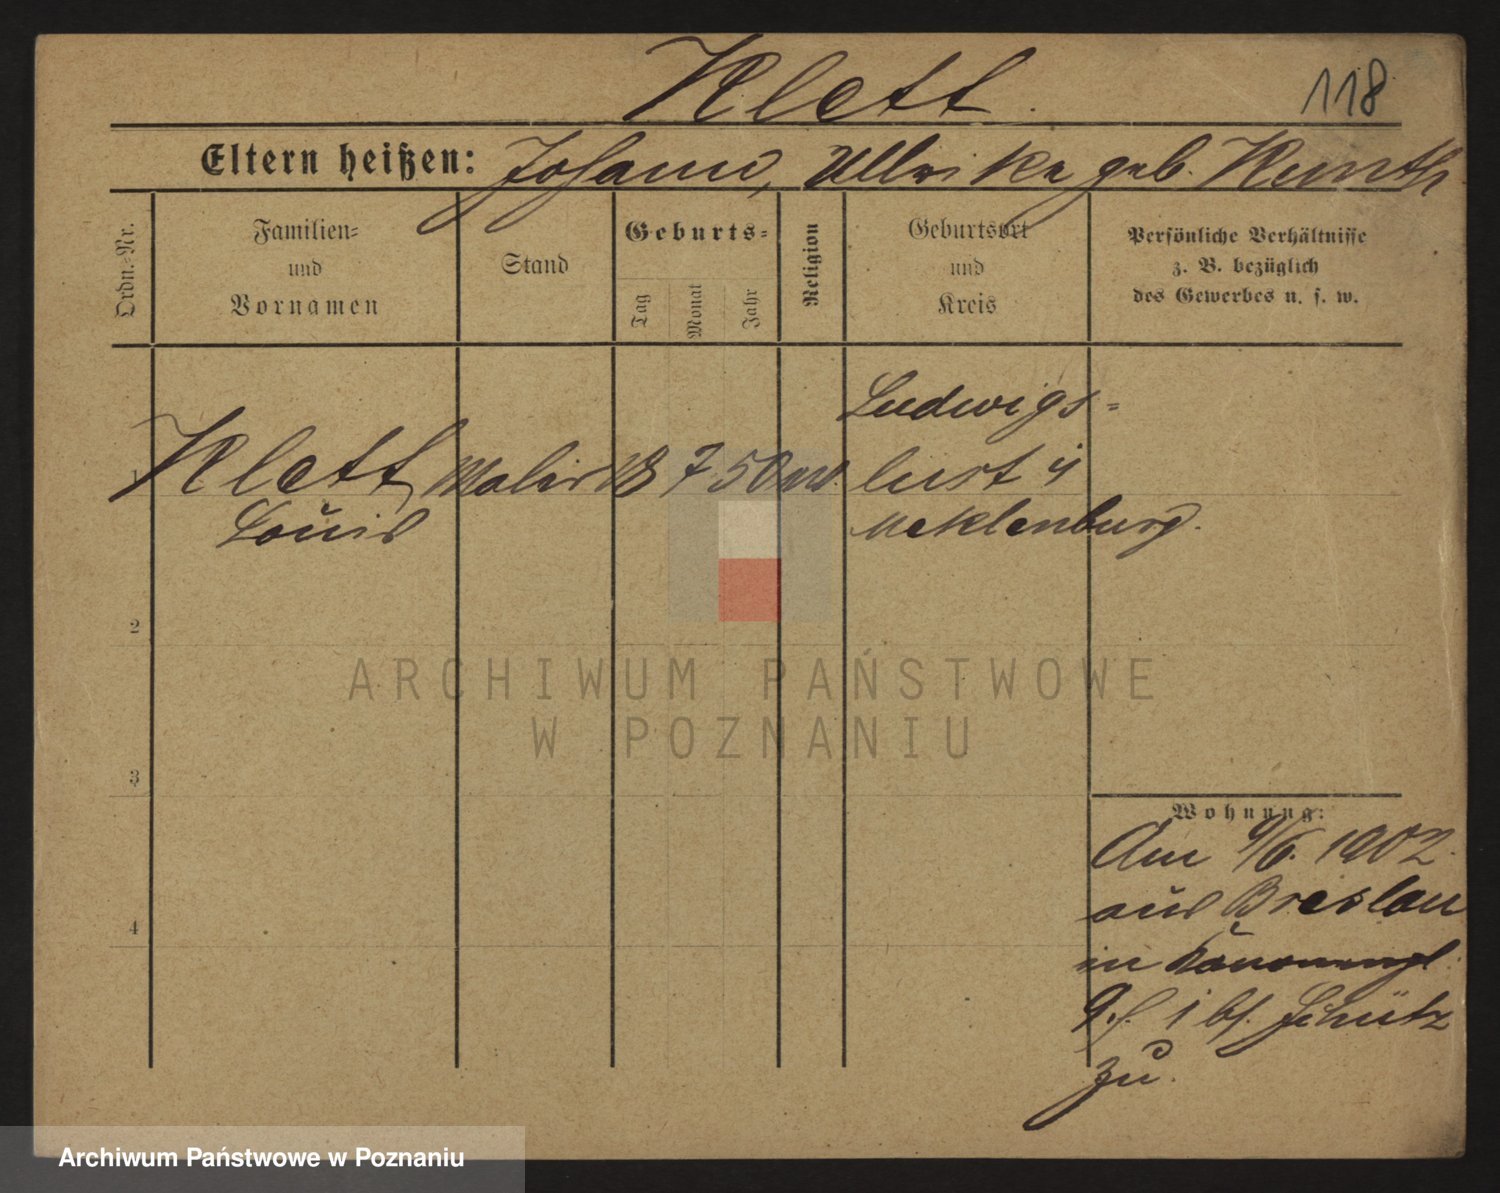 Klett.
118
Eltern heißen: Johann, Ullrike geb. Kunth
Ordn.-Nr.
Familien-
und
Vornamen
Stand
Geburts-
Tag
Monat
Jahr
Religion
Geburtsort
und
Kreis
Persönliche Verhältnisse
z. B. bezüglich
des Gewerbes u. s. w.
Ludwigs-
1 Klett Maler 18 7 50 lust i
Louis Meklenburg.
2
ARCHIWUM PAŃSTWOWE
W POZNANIU
3
Wohnung:
Am 9/6. 1902.
aus Breslau
in
i bf. Schütz
4
zu.
Archiwum Państwowe w Poznaniu